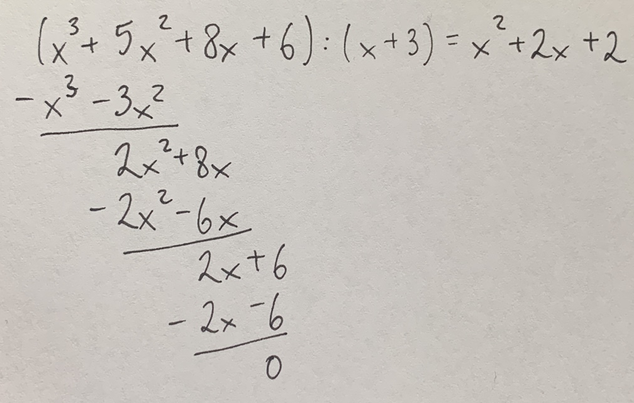 (x³ + 5x² + 8x + 6) : (x + 3) = x² + 2x + 2
- x³ - 3x²
2x² + 8x
- 2x² - 6x
2x + 6
- 2x - 6
0